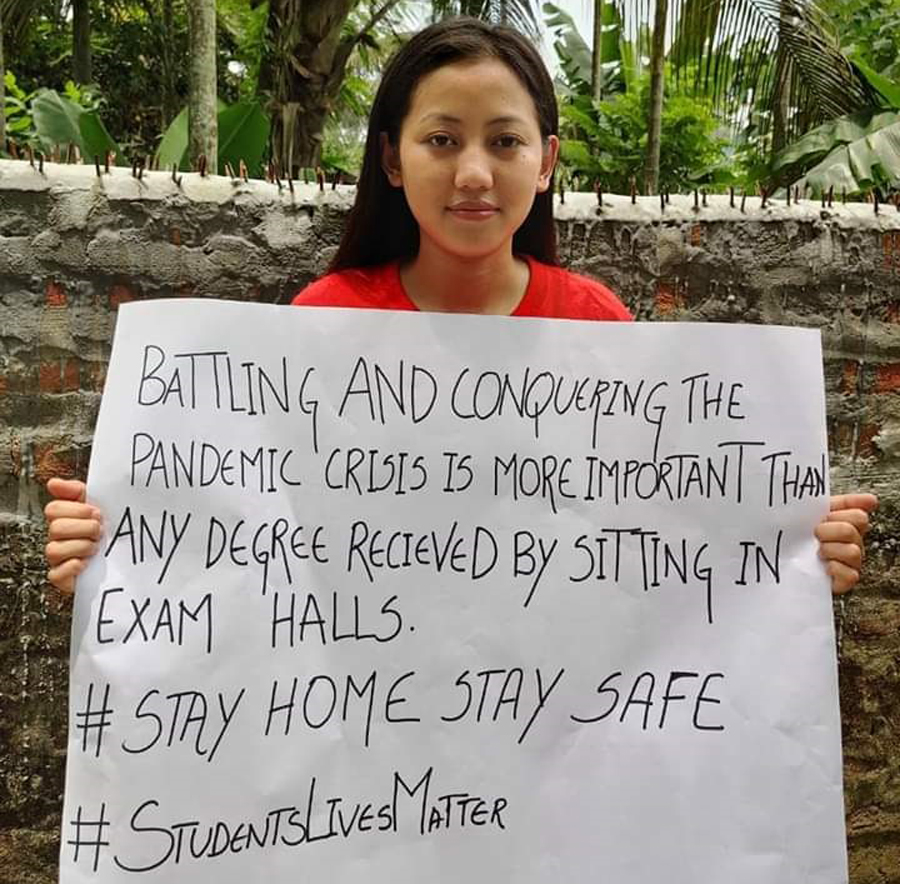 BATTLING AND CONQUERING THE
PANDEMIC CRISIS IS MORE IMPORTANT THAN
ANY DEGREE RECIEVED BY SITTING IN
EXAM HALLS.
# STAY HOME STAY SAFE
# STUDENTSLIVESMATTER